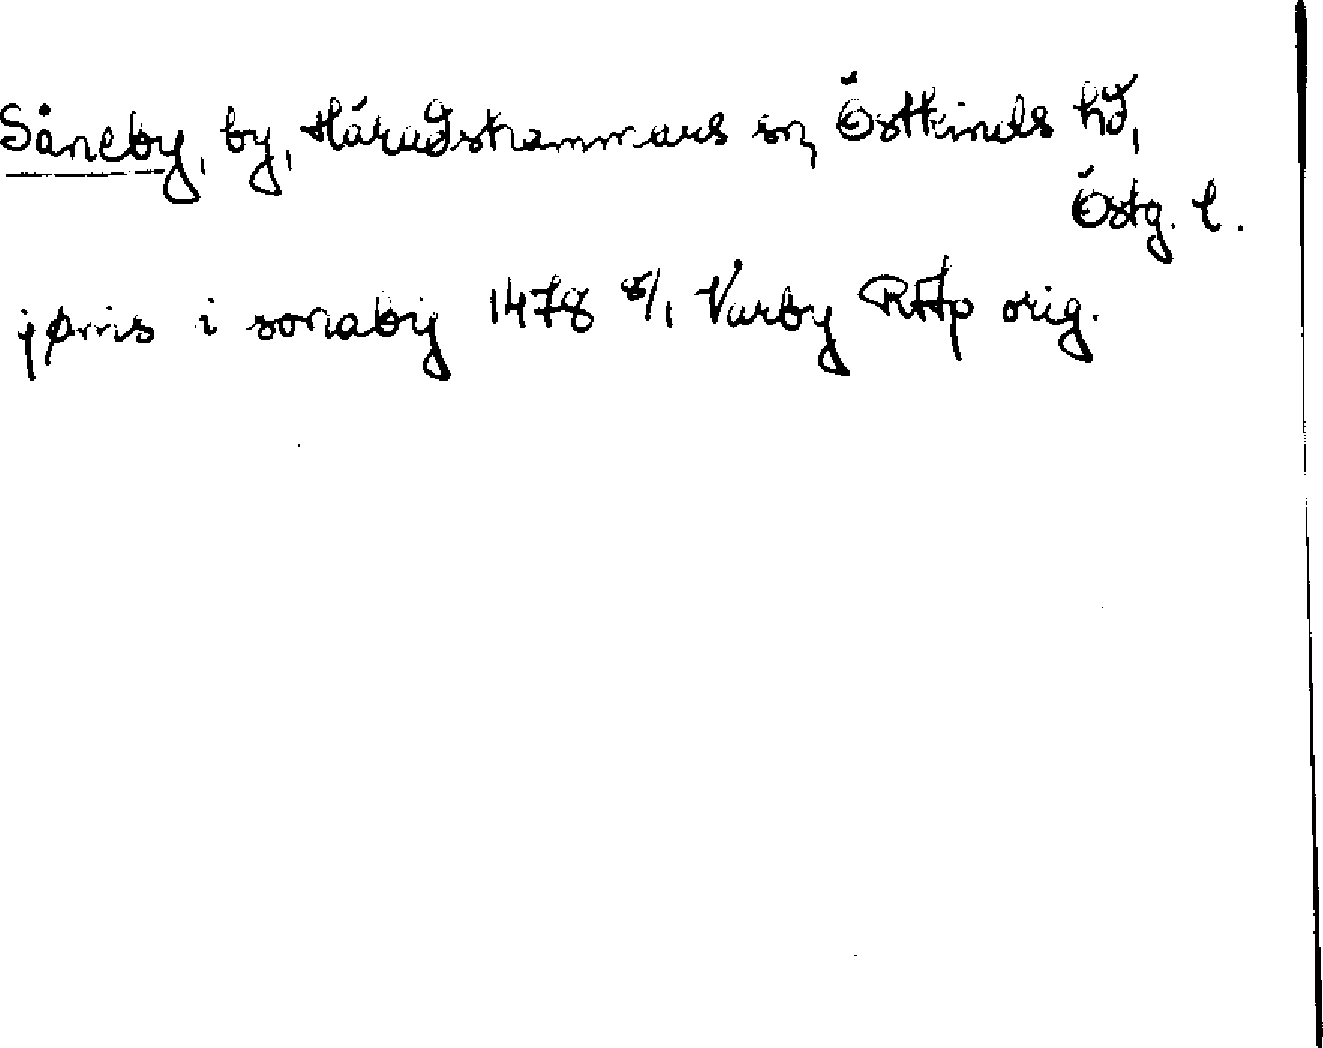 Såneby, by, Häradshammars sn, Östkinds hd,
Östg. l.
jønis i sonaby 1478 6/1 Vårby RAp orig.